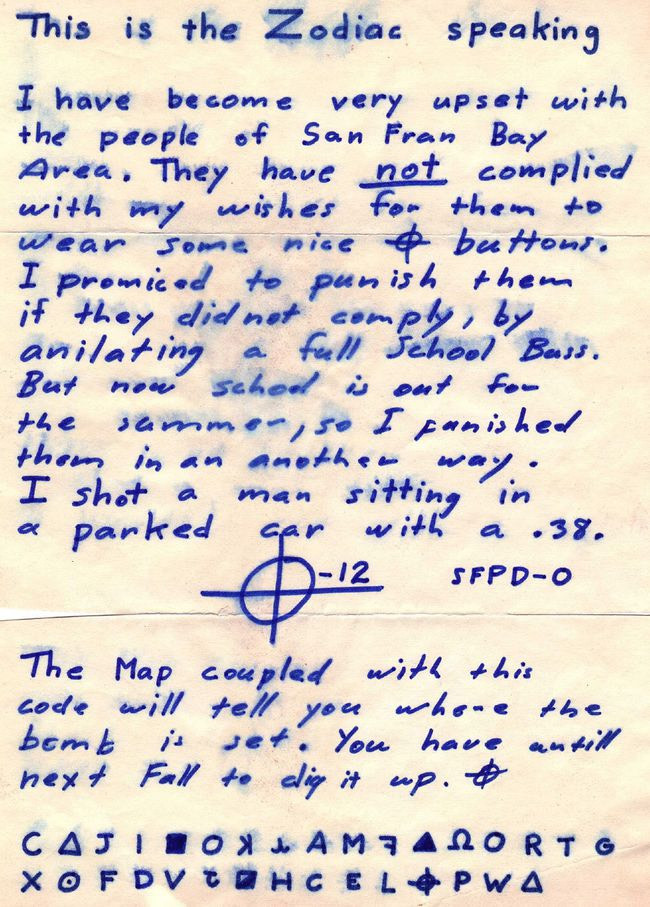 This is the Zodiac speaking
I have become very upset with
the people of San Fran Bay
Area. They have not complied
with my wishes for them to
wear some nice ⌖ buttons.
I promiced to punish them
if they did not comply, by
anilating a full School Buss.
But now school is out for
the summer, so I punished
them in an another way.
I shot a man sitting in
a parked car with a .38.
⌖-12 SFPD-0
The Map coupled with this
code will tell you where the
bomb is set. You have untill
next Fall to dig it up. ⌖
C △ J I ■ O ꓘ A M ꟻ ▲ Ω O R T G
X ⊙ F D V H C E L ⌖ P W △